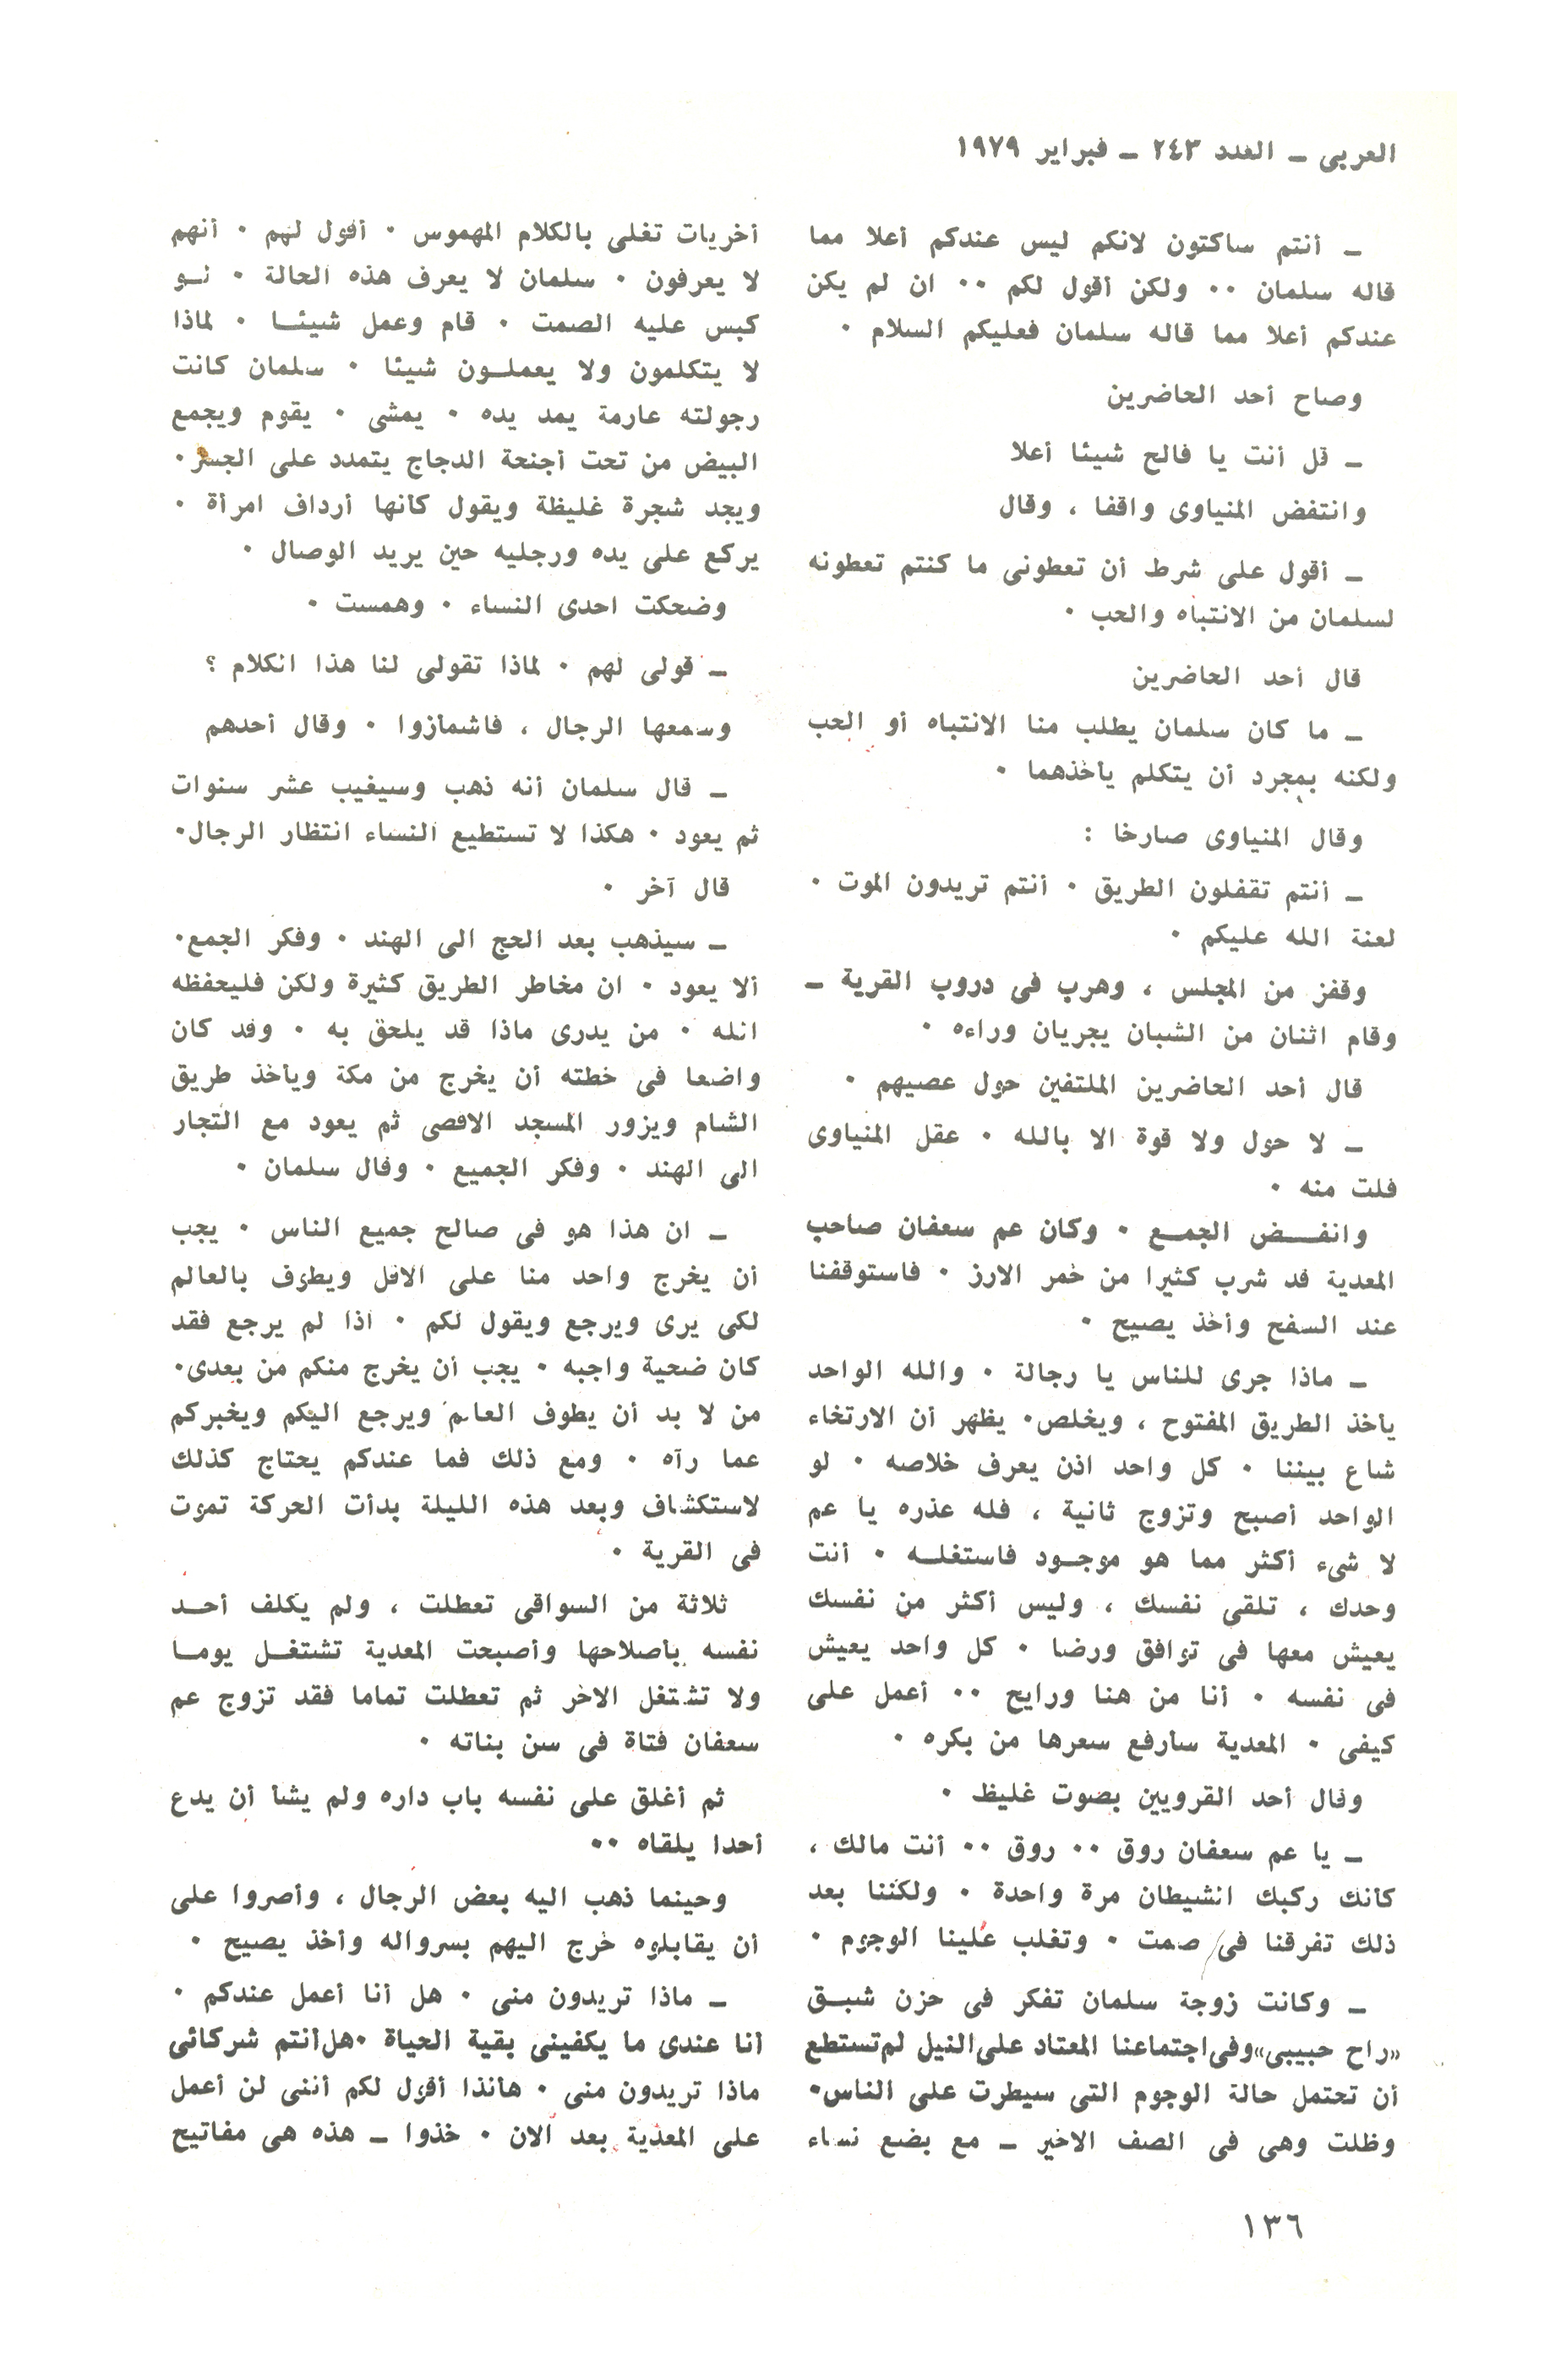 العربى ــ العدد ٢٤٣ ــ فبراير ١٩٧٩
ــ أنتم ساكتون لانكم ليس عندكم أعلا مما
قاله سلمان ٠٠ ولكن أقول لكم ٠٠ ان لم يكن
عندكم أعلا مما قاله سلمان فعليكم السلام ٠
وصاح أحد الحاضرين
ــ قل أنت يا فالح شيئا أعلا
وانتفض المنياوى واقفا ، وقال
ــ أقول على شرط أن تعطونى ما كنتم تعطونه
لسلمان من الانتباه والحب ٠
قال أحد الحاضرين
ــ ما كان سلمان يطلب منا الانتباه أو الحب
ولكنه بمجرد أن يتكلم يأخذهما ٠
وقال المنياوى صارخا :
ــ أنتم تقفلون الطريق ٠ أنتم تريدون الموت ٠
لعنة الله عليكم ٠
وقفز من المجلس ، وهرب فى دروب القرية ــ
وقام اثنان من الشبان يجريان وراءه ٠
قال أحد الحاضرين الملتفين حول عصيهم ٠
ــ لا حول ولا قوة الا بالله ٠ عقل المنياوى
فلت منه ٠
وانفــض الجمــع ٠ وكان عم سعفان صاحب
المعدية قد شرب كثيرا من خمر الارز ٠ فاستوقفنا
عند السفح وأخذ يصيح ٠
ــ ماذا جرى للناس يا رجالة ٠ والله الواحد
يأخذ الطريق المفتوح ، ويخلص٠ يظهر أن الارتخاء
شاع بيننا ٠ كل واحد اذن يعرف خلاصه ٠ لو
الواحد أصبح وتزوج ثانية ، فله عذره يا عم
لا شىء أكثر مما هو موجــود فاستغلــه ٠ أنت
وحدك ، تلقى نفسك ، وليس أكثر من نفسك
يعيش معها فى توافق ورضا ٠ كل واحد يعيش
فى نفسه ٠ أنا من هنا ورايح ٠٠ أعمل على
كيفى ٠ المعدية سأرفع سعرها من بكره ٠
وقال أحد القرويين بصوت غليظ ٠
ــ يا عم سعفان روق ٠٠ روق ٠٠ أنت مالك ،
كأنك ركبك الشيطان مرة واحدة ٠ ولكننا بعد
ذلك تفرقنا فى صمت ٠ وتغلب علينا الوجوم ٠
ــ وكانت زوجة سلمان تفكر فى حزن شبــق
«راح حبيبى» وفى اجتماعنا المعتاد على النيل لم تستطع
أن تحتمل حالة الوجوم التى سيطرت على الناس٠
وظلت وهى فى الصف الاخير ــ مع بضع نساء
أخريات تغلى بالكلام المهموس ٠ أقول لهم ٠ أنهم
لا يعرفون ٠ سلمان لا يعرف هذه الحالة ٠ لــو
كبس عليه الصمت ٠ قام وعمل شيئــا ٠ لماذا
لا يتكلمون ولا يعملــون شيئا ٠ سلمان كانت
رجولته عارمة يمد يده ٠ يمشى ٠ يقوم ويجمع
البيض من تحت أجنحة الدجاج يتمدد على الجسر ٠
ويجد شجرة غليظة ويقول كأنها أرداف امرأة ٠
يركع على يده ورجليه حين يريد الوصال ٠
وضحكت احدى النساء ٠ وهمست ٠
ــ قولى لهم ٠ لماذا تقولى لنا هذا الكلام ؟
وسمعها الرجال ، فاشمازوا ٠ وقال أحدهم
ــ قال سلمان أنه ذهب وسيغيب عشر سنوات
ثم يعود ٠ هكذا لا تستطيع النساء انتظار الرجال٠
قال آخر ٠
ــ سيذهب بعد الحج الى الهند ٠ وفكر الجمع٠
ألا يعود ٠ ان مخاطر الطريق كثيرة ولكن فليحفظه
الله ٠ من يدرى ماذا قد يلحق به ٠ وقد كان
واضعا فى خطته أن يخرج من مكة ويأخذ طريق
الشام ويزور المسجد الاقصى ثم يعود مع التجار
الى الهند ٠ وفكر الجميع ٠ وقال سلمان ٠
ــ ان هذا هو فى صالح جميع الناس ٠ يجب
أن يخرج واحد منا على الاقل ويطوف بالعالم
لكى يرى ويرجع ويقول لكم ٠ اذا لم يرجع فقد
كان ضحية واجبه ٠ يجب أن يخرج منكم من بعدى٠
من لا بد أن يطوف العالم ويرجع اليكم ويخبركم
عما رآه ٠ ومع ذلك فما عندكم يحتاج كذلك
لاستكشاف وبعد هذه الليلة بدأت الحركة تموت
فى القرية ٠
ثلاثة من السواقى تعطلت ، ولم يكلف أحــد
نفسه بأصلاحها وأصبحت المعدية تشتغــل يومــا
ولا تشتغل الاخر ثم تعطلت تماما فقد تزوج عم
سعفان فتاة فى سن بناته ٠
ثم أغلق على نفسه باب داره ولم يشأ أن يدع
أحدا يلقاه ٠٠
وحينما ذهب اليه بعض الرجال ، وأصروا على
أن يقابلوه خرج اليهم بسرواله وأخذ يصيح ٠
ــ ماذا تريدون منى ٠ هل أنا أعمل عندكم ٠
أنا عندى ما يكفينى بقية الحياة ٠هل أنتم شركائى
ماذا تريدون منى ٠ هأنذا أقول لكم أننى لن أعمل
على المعدية بعد الان ٠ خذوا ــ هذه هى مفاتيح
١٣٦